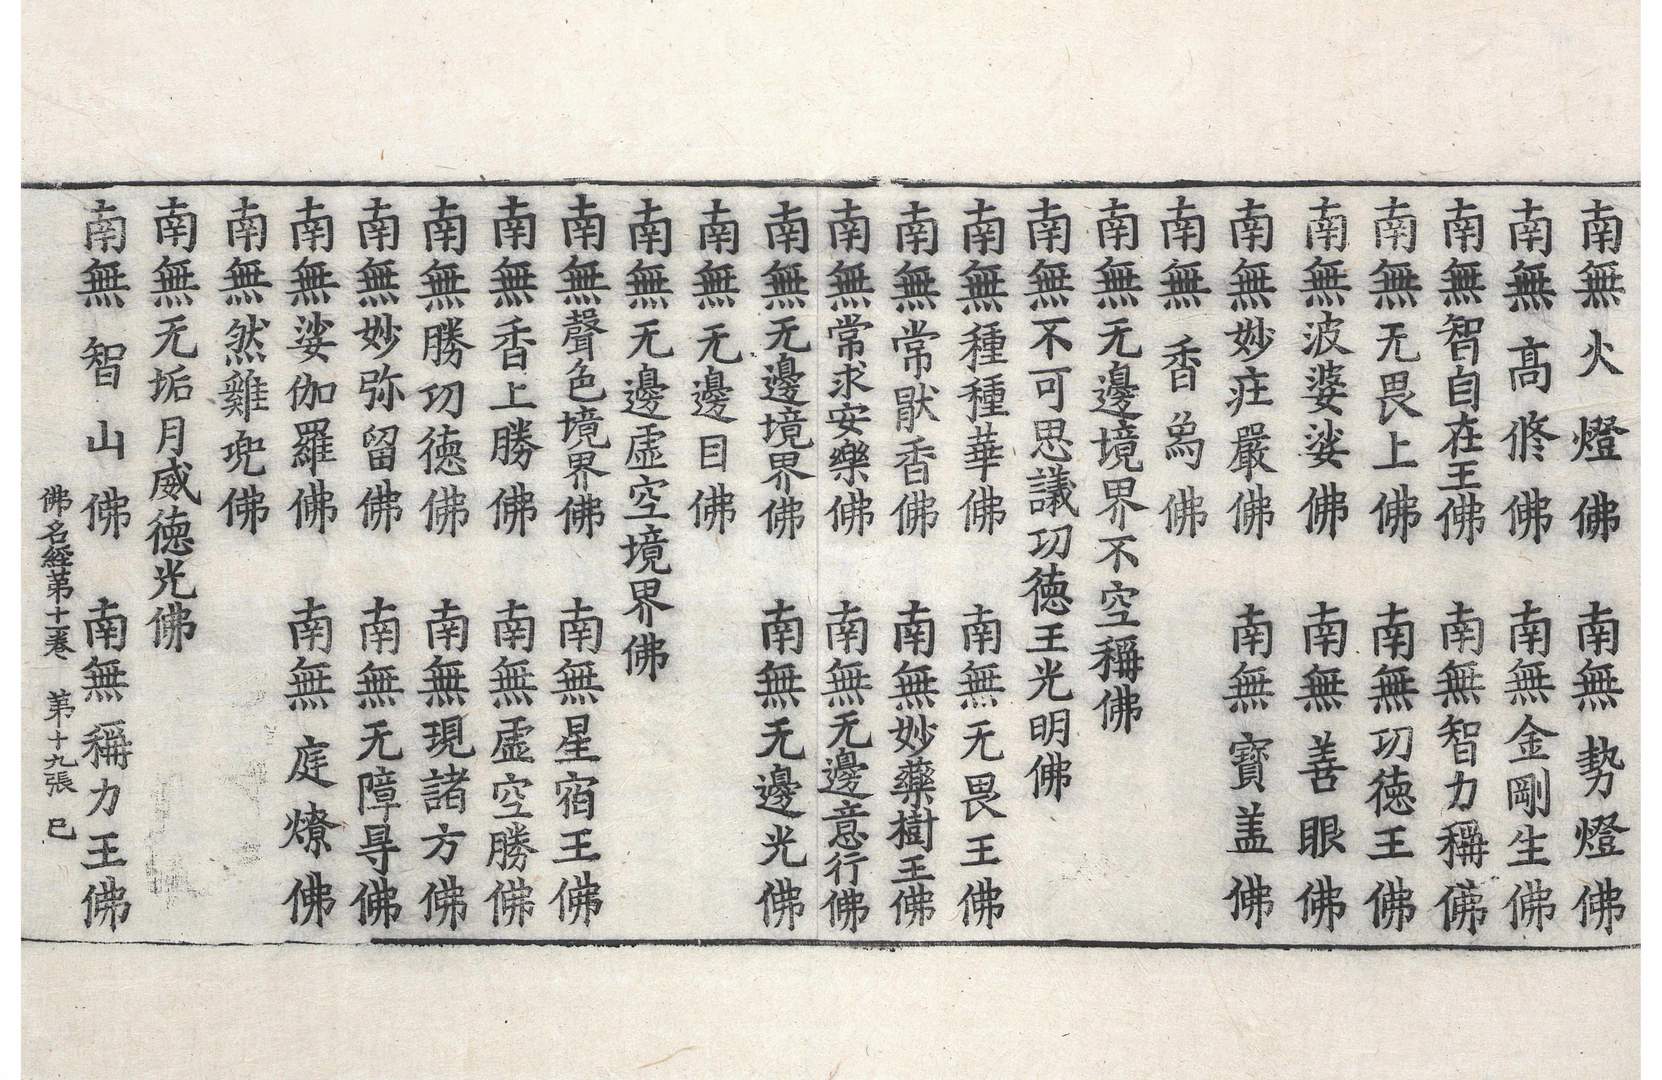 南無火燈佛 南無勢燈佛
南無高修佛 南無金剛生佛
南無智自在王佛 南無智力稱佛
南無无畏上佛 南無功德王佛
南無波婆娑佛 南無善眼佛
南無妙疘嚴佛 南無寶盖佛
南無香爲佛
南無无邊境界不空稱佛
南無不可思議功德王光明佛
南無種種華佛 南無无畏王佛
南無常猒香佛 南無妙藥樹王佛
南無常求安樂佛 南無无邊意行佛
南無无邊境界佛 南無无邊光佛
南無无邊目佛
南無无邊虛空境界佛
南無聲色境界佛 南無星宿王佛
南無香上勝佛 南無虛空勝佛
南無勝功德佛 南無現諸方佛
南無妙弥留佛 南無无障㝵佛
南無娑伽羅佛 南無庭燎佛
南無然雞兜佛
南無无垢月威德光佛
南無智山佛 南無稱力王佛
佛名經第十一卷 第十九張 巳